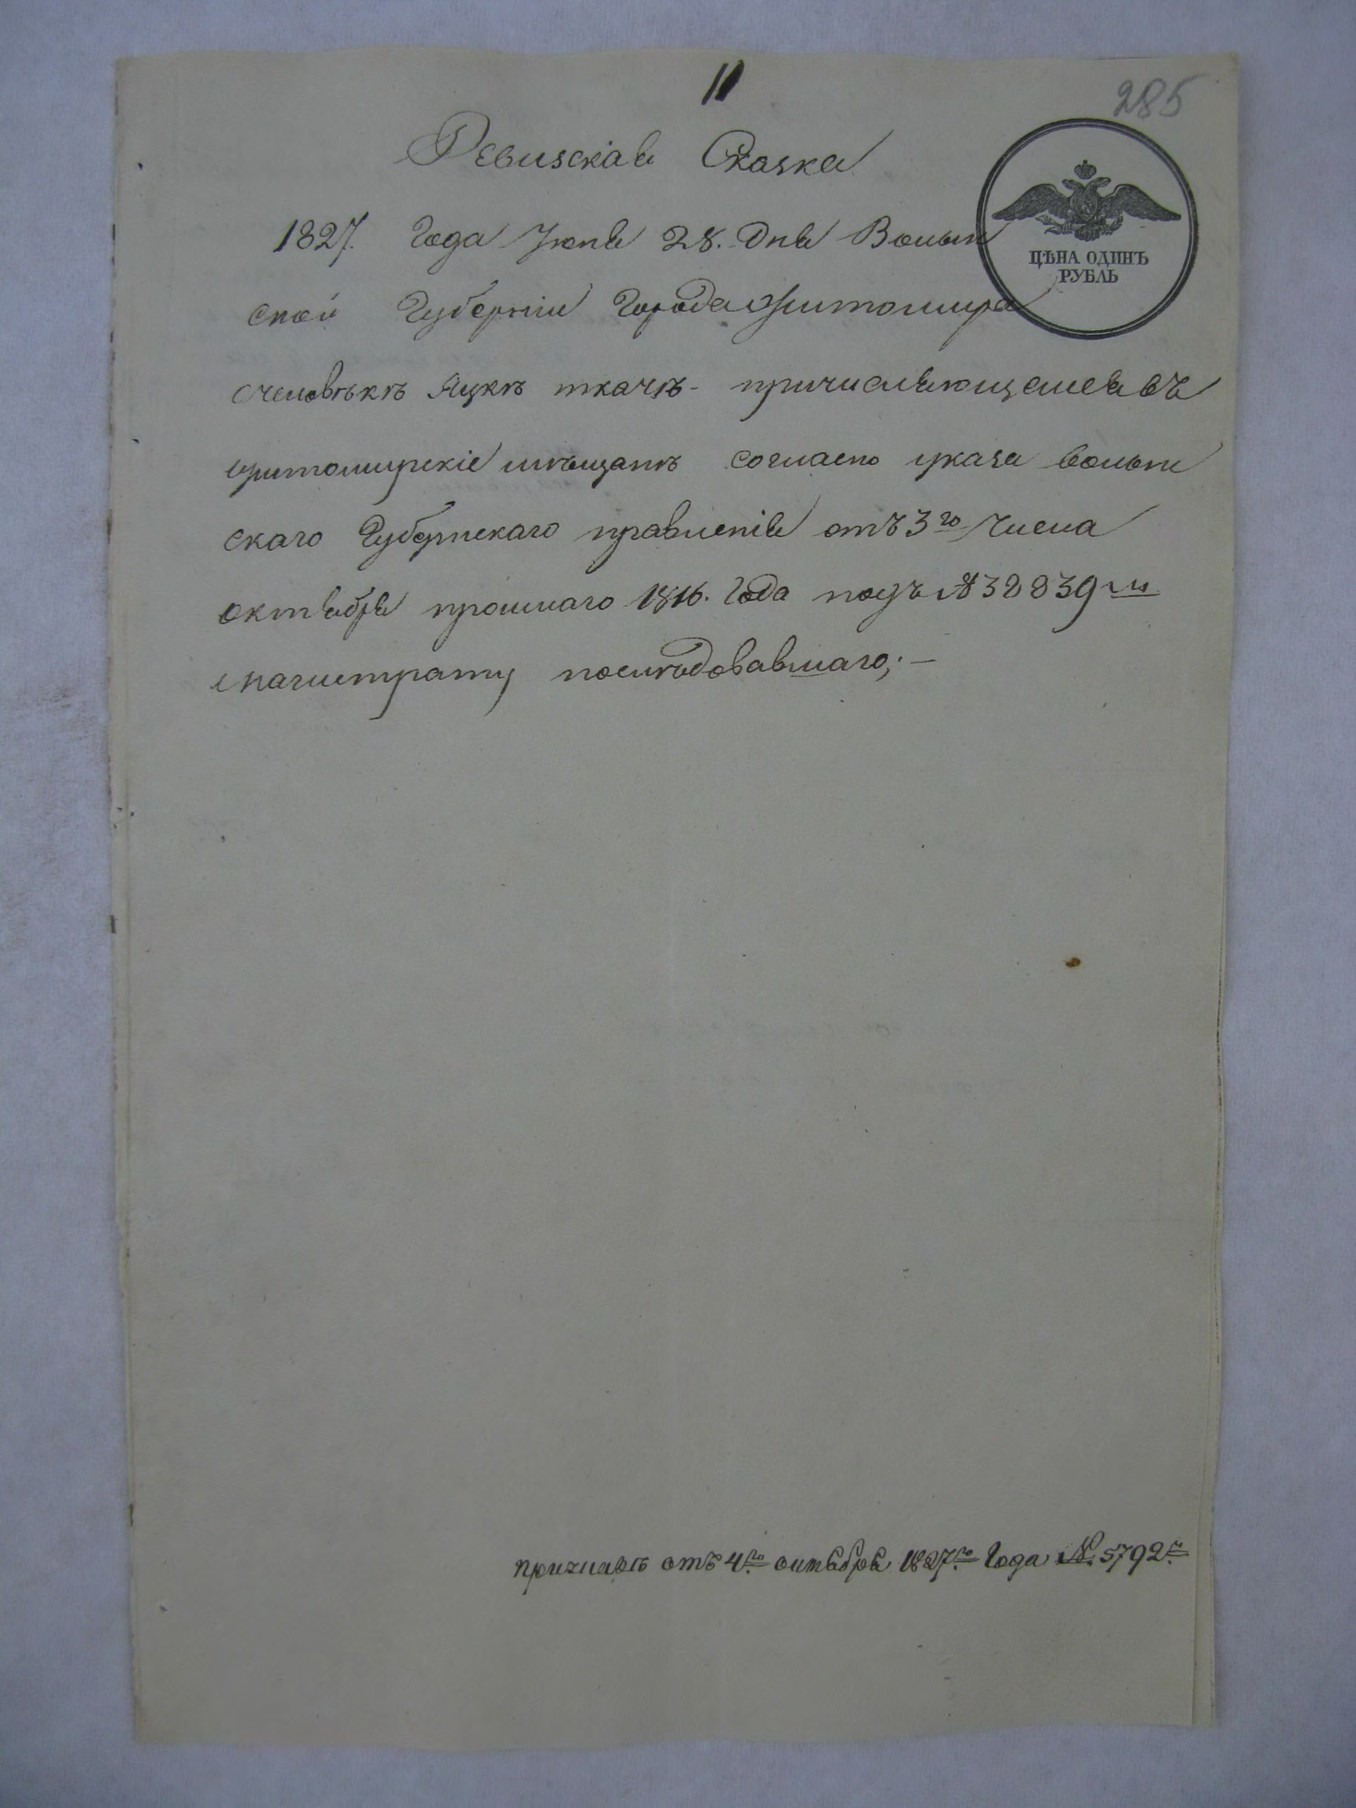 11
285
Ревизская Сказка
ЦѢНА ОДИНЪ
РУБЛЬ
1827. Года Июня 28. Дня Волын
ской Губернии Города Житомира
о человѣкѣ Яцкѣ ткачѣ - причисляющемся въ
житомирскіе мѣщанѣ согласно указа волын
скаго Губернскаго правленія отъ 3го числа
октября прошлаго 1816. Года подъ № 32839м
магистрату послѣдовавшаго; –
отъ 4го октября 1827го Года № 5792.